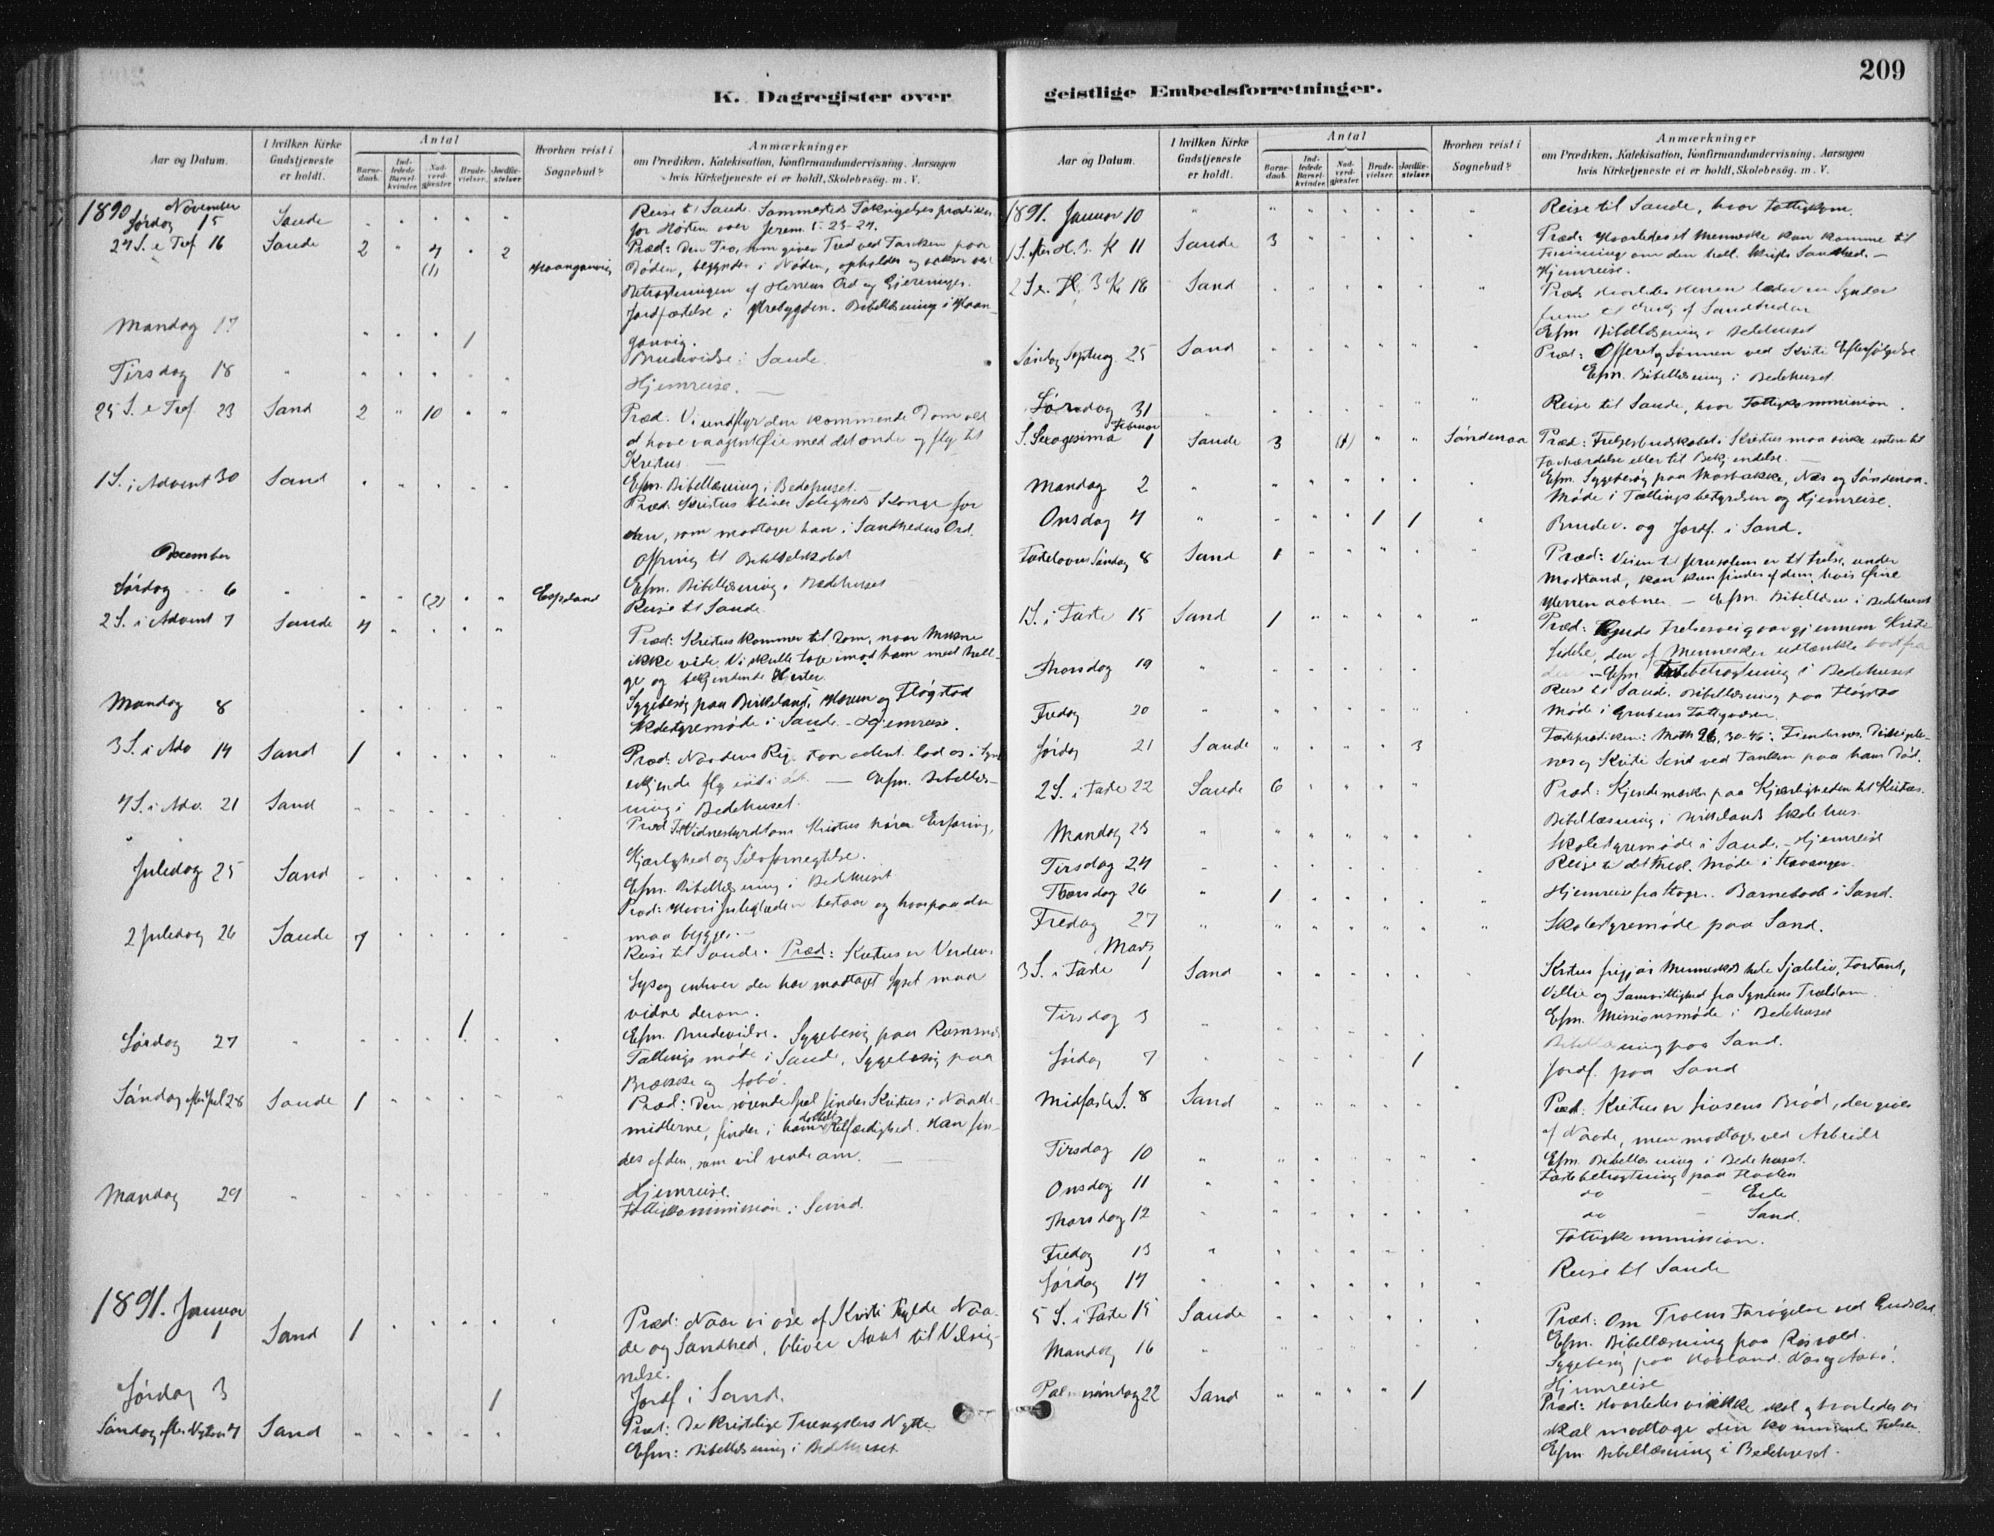 209
K. Dagregister over
geistlige Embedsforretninger.
Aar og Datum.
I hvilken Kirke Gudstjeneste er holdt.
Antal
Barnedaab.
Indledede Barselkvinder.
Nadverdgjæster
Brudevielser.
Jordfæstelser.
Hvorhen reist i Sognebud?
Anmærkninger
om Prædiken, Katekisation, Konfirmandundervisning, Aarsagen
hvis Kirketjeneste ei er holdt, Skolebesøg. m. V.
1890 November
Lørdag 15 Sande
Reise til Sande. Sammesteds Taksigelsesprædiken
for Høsten over Jerem. 5. 23-24.
27 S. e Tref 16 Sande 2 " 4 " 2
Præd: Den Tro, som giver Fred ved Tanken paa
(1)
Døden, begynder i Nøden, opholdes og vokser ved
Betragtningen af Herrens Ord og Gjerninger.
Jordfæstelse i Bibellæsning i
Mandag 17 1
Brudevielse i Sande
Tirsdag 18
Hjemreise.
25 S. e Tref 23 Sand 2 " 10 " "
Præd. Vi undflyr den kommende Dom ved
at have vaagent Øie med det onde og fly til
Kristus.
Efm. Bibellæsning i Bedehuset.
1 S. i Advent 30 Sand
Præd. Kristus bliver Saligheds Konge for
den, som modtager han i Sandhedens Ord.
Ofring til Bibelselskabet
Efm. Bibellæsning i Bedehuset
December
Lørdag 6 (2)
Reise til Sande.
2 S. i Advent 7 Sande 4
Præd: Kristus kommer til Dom, naar Menne
ikke vide. Vi skulle tage imod ham med
og bekjendende Hjerter.
Mandag 8
Sygebesøg paa Birkeland, og Fløgstad
Skolestyremøde i Sande. Hjemreise.
3 S. i Adv 14 Sand 1
Præd. Naadens Rig. staar aabent. lad os i
erkjende fly ind i det. — Efm. Bibellæs-
ning i Bedehuset.
4 S. i Adv. 21 Sand
Kjærlighed og Selvfornegtelse.
Efm. Bibellæsning i Bedehuset
Juledag 25 Sand
Præd: Hvori Juleglæden bestaar og hvorpaa den
maa bygges. —
2 Juledag 26 Sande 7
Reise til Sande. Præd: Kristus er Verdens
Lys og enhver der har modtaget Lyset maa
vidne derom.
Efm. Brudevielse. Sygebesøg paa
Lørdag 27 1
møde i Sande. Sygebesøg paa
Brække og Aabø.
Søndag efter Jul 28 Sande 1
Præd: Den finder Kristus i Naade-
midlerne, finder i ham Retfærdighed. Han fin-
des af den, som vil vende om.
Mandag 29
Hjemreise.
Fattigkommission i Sand.
1891. Januar
1 Sand 1
Præd: Naar vi øse af Kristi Fylde Naa-
de og Sandhed, bliver Aaret til Velsig-
nelse.
Lørdag 3 1
Jordf i Sand.
Søndag efter Nytaar 4 Sand
Præd: De kristelige Trængslers Nytte
Efm: Bibellæsning i Bedehuset
Aar og Datum.
I hvilken Kirke Gudstjeneste er holdt.
Antal
Barnedaab.
Indledede Barselkvinder.
Nadverdgjester
Brudevielser.
Jordfæstelser.
Hvorhen reist i Sognebud?
Anmærkninger
om Prædiken, Katekisation, Konfirmandundervisning, Aarsagen
hvis Kirketjeneste ei er holdt, Skolebesøg. m. V.
1891. Januar 10
Reise til Sande, hvor Fattigkom.
1 S. efter H. 3 K 11 Sande 3
Præd: Hvorledes et Menneske kan komme til
om den hell. Skrifts Sandhed. —
Hjemreise.
2 S. e. H. 3 K 18 Sand
Præd: Hvorledes Herren leder en Synder
frem til af Sandheden
Efm Bibellæsning i Bedehuset
Søndag Septuag 25 Sand
Præd: ved Kristi Efterfølgelse
Efm. Bibellæsning i Bedehuset.
Lørdag 31
Reise til Sande, hvor Fattigkommission.
Februar
S. Sexagesima 1 Sande 3 Søndenaa
Præd: Frelserbudskabet i Kristus maa virke enten til
Forhærdelse eller til
Efm. Sygebesøg paa Mosbakke, Næs og Søndenaa.
Mandag 2
Møde i og Hjemreise.
Onsdag 4 1 1
Brudev. og Jordf. i Sand.
Fastelavns Søndag 8 Sand 1
Præd: Veien til Jerusalem er til Frelse, under
Modstand, kan kun findes af dem, hvis Øine
Herren aabner. — Efm. Bibellæsn i Bedehuset
1 S. i Faste 15 Sand 1
Præd: Guds Frelsesvei gjennem Kristi
Lidelse, den af Mennesker udtænkte bort fra
den — Efm i Bedehuset
Thorsdag 19
Reise til Sande. Bibellæsning paa Fløgstad
Fredag 20
Møde i
Lørdag 21 Sande 3
Fasteprædiken: Math 26, 30-46:
nes og Kristi Sind ved Tanken paa hans Død.
2 S. i Faste 22 Sande 6
Præd: Kjendemærke paa Kjærligheden til Kristus.
Bibellæsning i Birkelands Skolehus.
Mandag 23
Skolestyremøde i Sande. — Hjemreise
Tirsdag 24
Møde i Stavanger.
Thorsdag 26 1
Hjemreise fra Barnedaab i Sand.
Fredag 27
Skolestyremøde paa Sand.
Marts
3 S. i Faste 1 Sand
Kristus frigjør Menneskets hele Sjæleliv, Forstand,
Villie og Samvittighed fra Syndens Trældom
Efm. Missionsmøde i Bedehuset
Tirsdag 3
Bibellæsning paa Sand.
Lørdag 7 1
Jordf. paa Sand
Midfaste S. 8 Sand
Præd: Kristus er Livsens Brød, der gives
af Naade, men modtages ved Arbeide
Efm. Bibellæsning i Bedehuset.
Tirsdag 10
Fastebetragtning paa
Onsdag 11
do — Eide
Thorsdag 12
do — Sand.
Fredag 13
Fattigkommission.
Lørdag 14
Reise til Sande
5 S. i Faste 15 Sande
Præd: Om Troens Forøgelse ved Guds Ord.
Efm. Bibellæsning paa Risvold.
Mandag 16
Sygebesøg paa Hovland. Næs og Aabø.
Hjemreise
Palmesøndag 22 Sand 1
Præd: Hvorledes vi ikke skal og hvorledes vi
skal modtage den kommende Frelser
Efm Bibellæsning i Bedehuset.